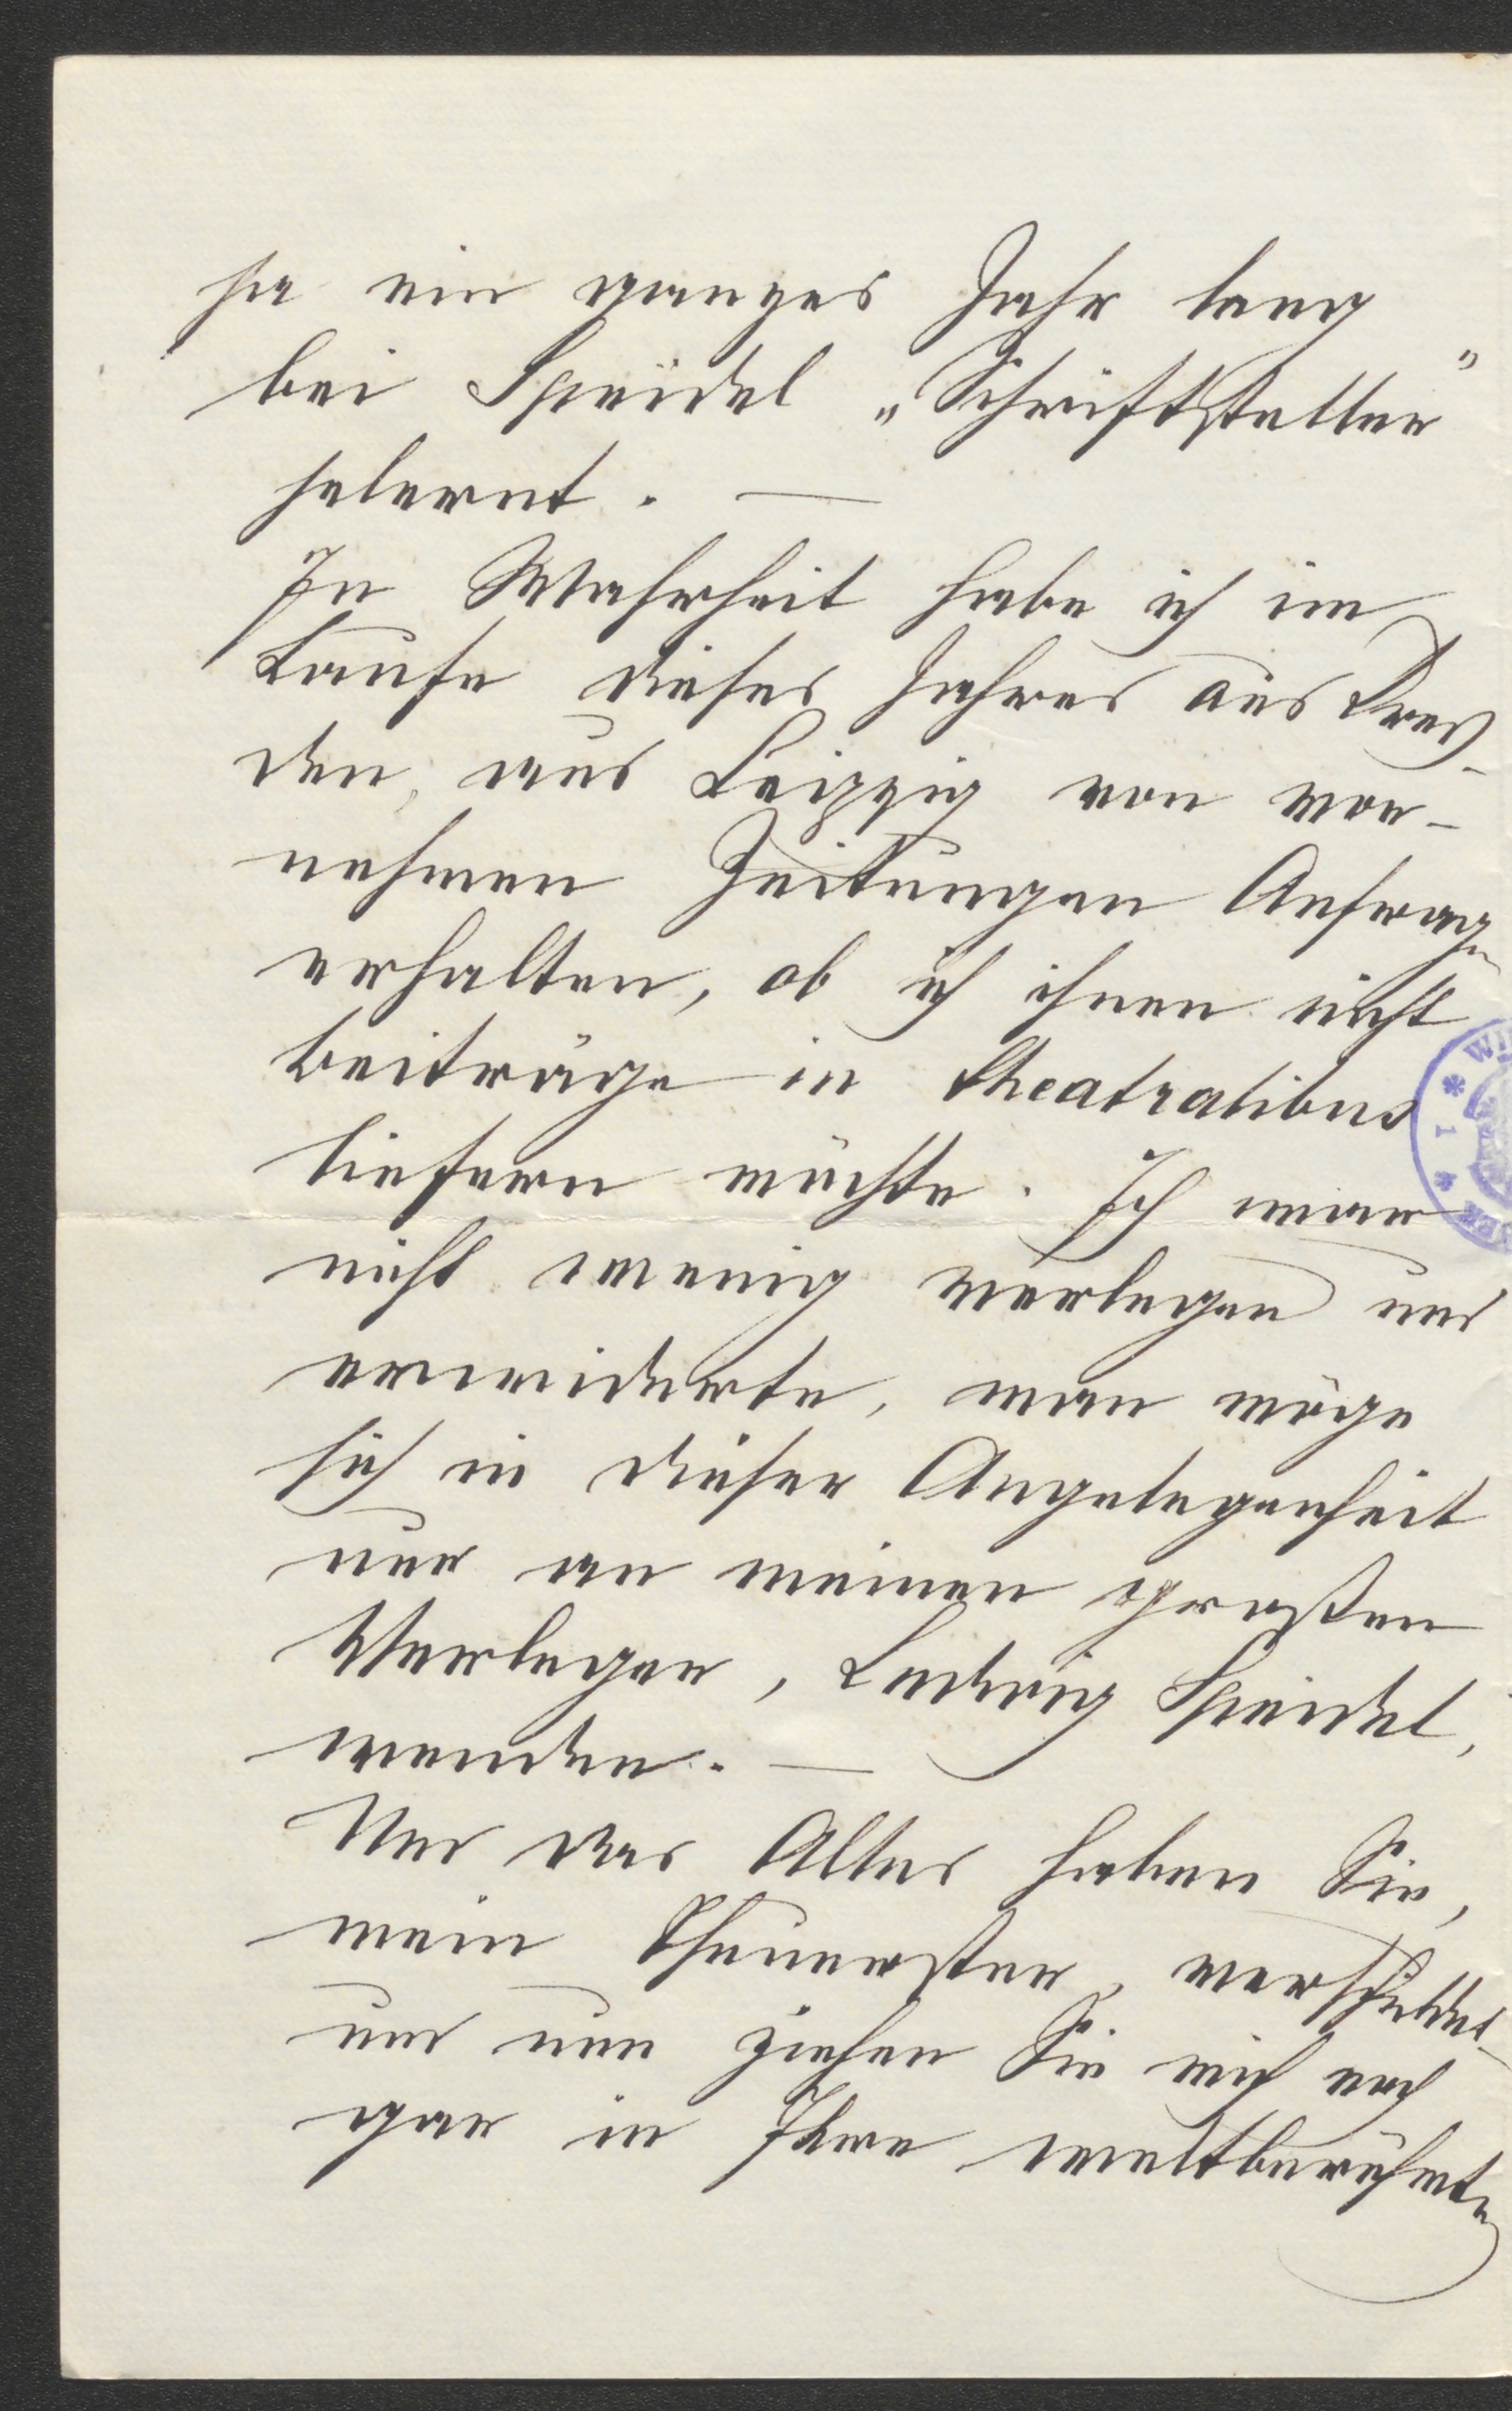 ja ein ganzes Jahr lang
bei Speidel „Schriftsteller"
jelernt. —
In Wahrheit habe ich im
Laufe dieses Jahres aus Dres-
den, aus Leipzig von vor-
nehmen Zeitungen Anfragen
erhalten, ob ich ihnen nicht
Beiträge in theatralibus
liefern möchte. Ich war
nicht wenig verlegen und
erwiderte, man möge
sich in dieser Angelegenheit
nur an meinen großen
Verleger, Ludwig Speidel,
wenden. —
Und das Alles haben Sie,
mein Theuerster, verschuldet
und nun ziehen Sie mich noch
gar in Ihre weltberühmte